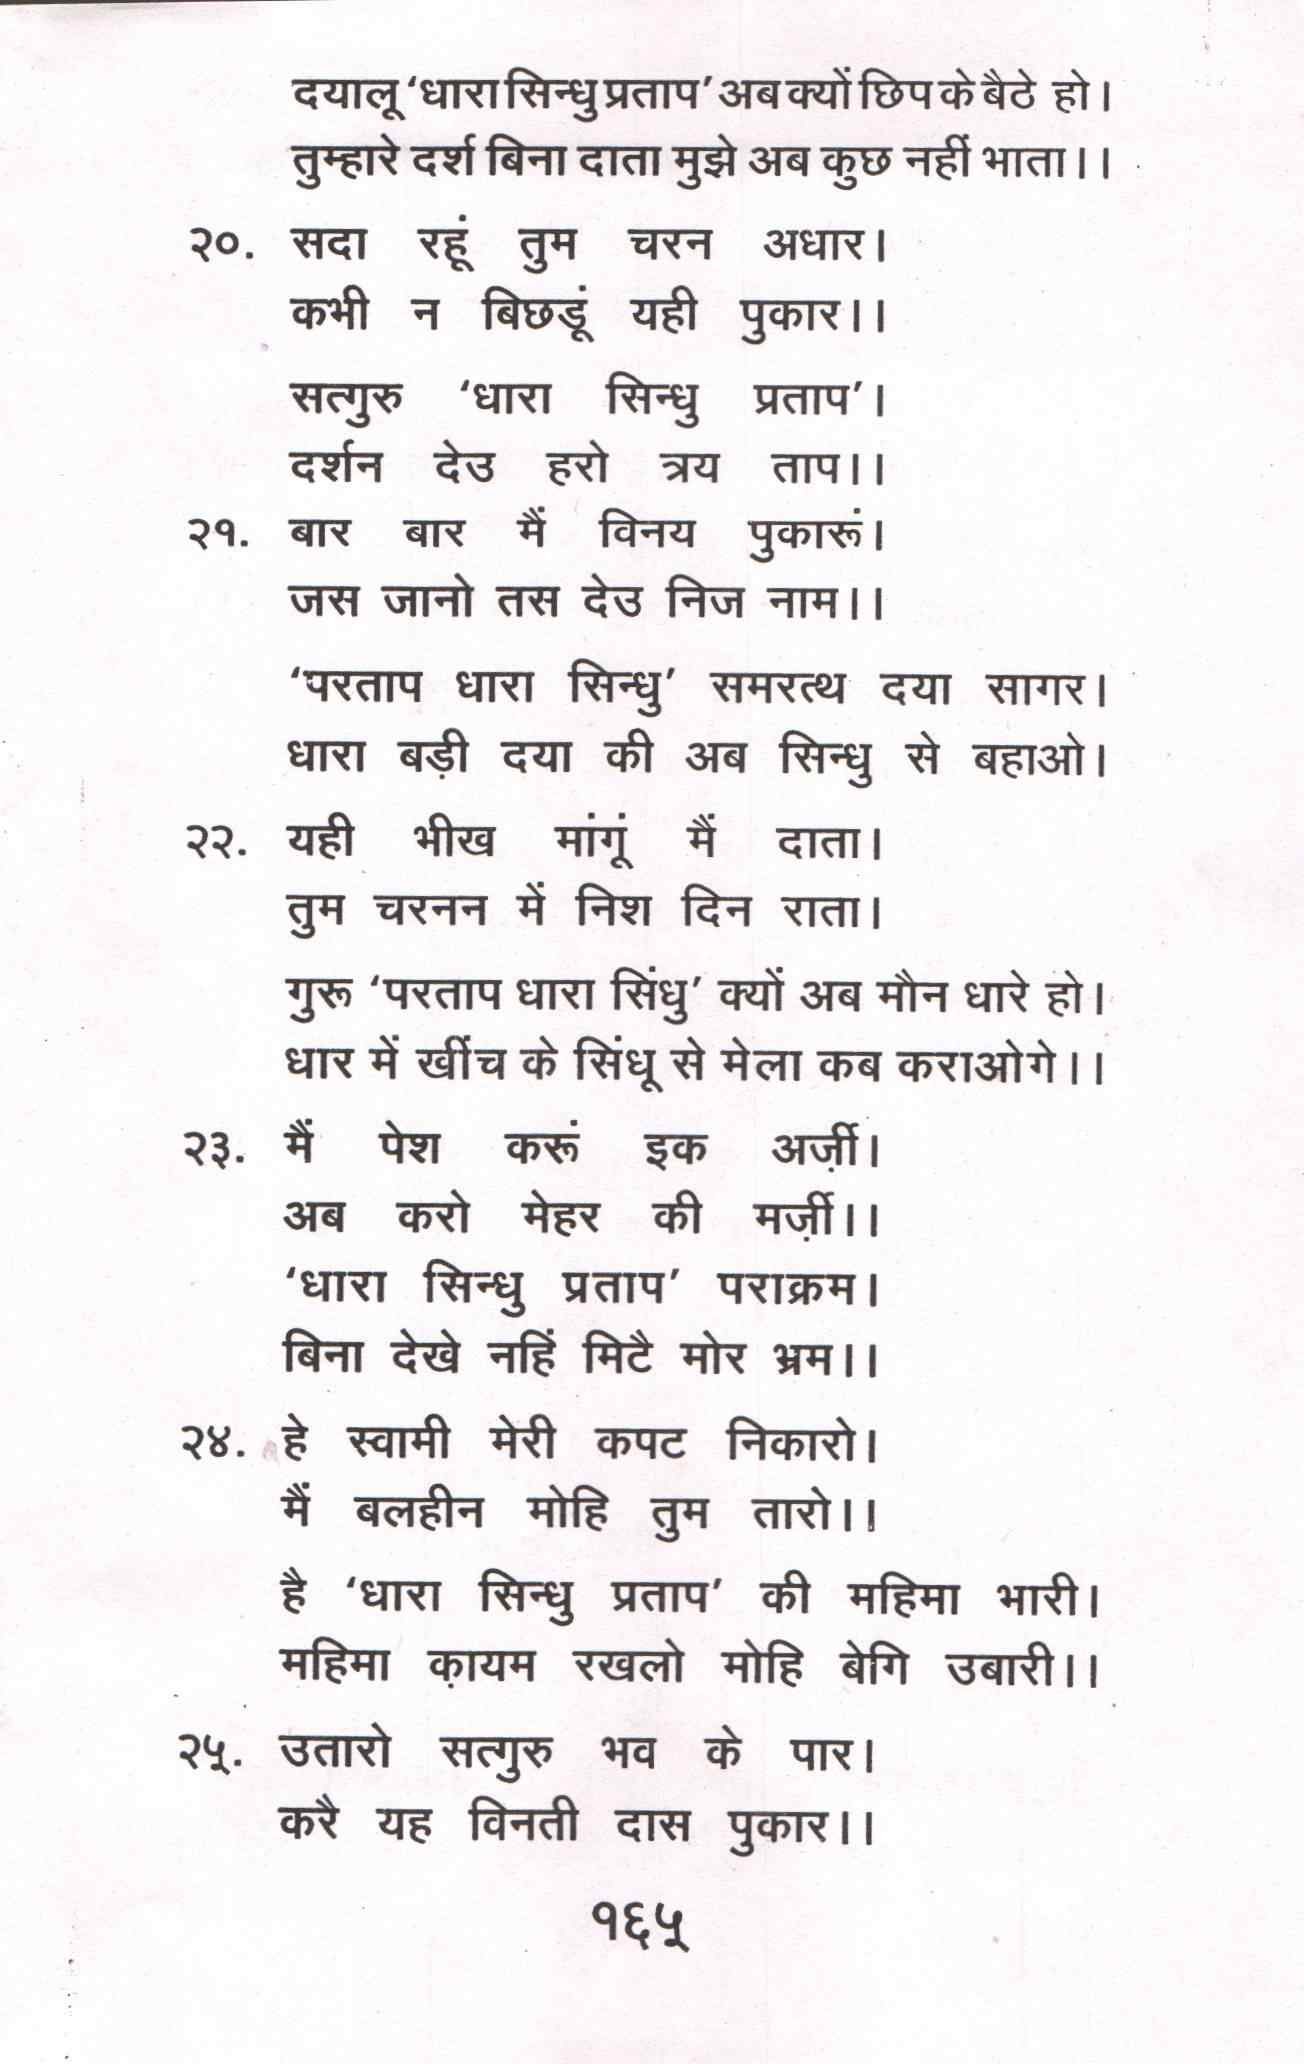 दयालू ‘धारा सिन्धु प्रताप’ अब क्यों छिप के बैठे हो।
तुम्हारे दर्श बिना दाता मुझे अब कुछ नहीं भाता।।
२०. सदा रहूं तुम चरन अधार।
कभी न बिछडूं यही पुकार।।
सत्गुरु ‘धारा सिन्धु प्रताप’।
दर्शन देउ हरो त्रय ताप।।
२१. बार बार मैं विनय पुकारूं।
जस जानो तस देउ निज नाम।।
‘परताप धारा सिन्धु’ समरत्थ दया सागर।
धारा बड़ी दया की अब सिन्धु से बहाओ।
२२. यही भीख मांगूं मैं दाता।
तुम चरनन में निश दिन राता।
गुरू ‘परताप धारा सिंधु’ क्यों अब मौन धारे हो।
धार में खींच के सिंधू से मेला कब कराओगे।।
२३. मैं पेश करूं इक अर्ज़ी।
अब करो मेहर की मर्ज़ी।।
‘धारा सिन्धु प्रताप’ पराक्रम।
बिना देखे नहिं मिटै मोर भ्रम।।
२४. हे स्वामी मेरी कपट निकारो।
मैं बलहीन मोहि तुम तारो।।
है ‘धारा सिन्धु प्रताप’ की महिमा भारी।
महिमा क़ायम रखलो मोहि बेगि उबारी।।
२५. उतारो सत्गुरु भव के पार।
करै यह विनती दास पुकार।।
१६५